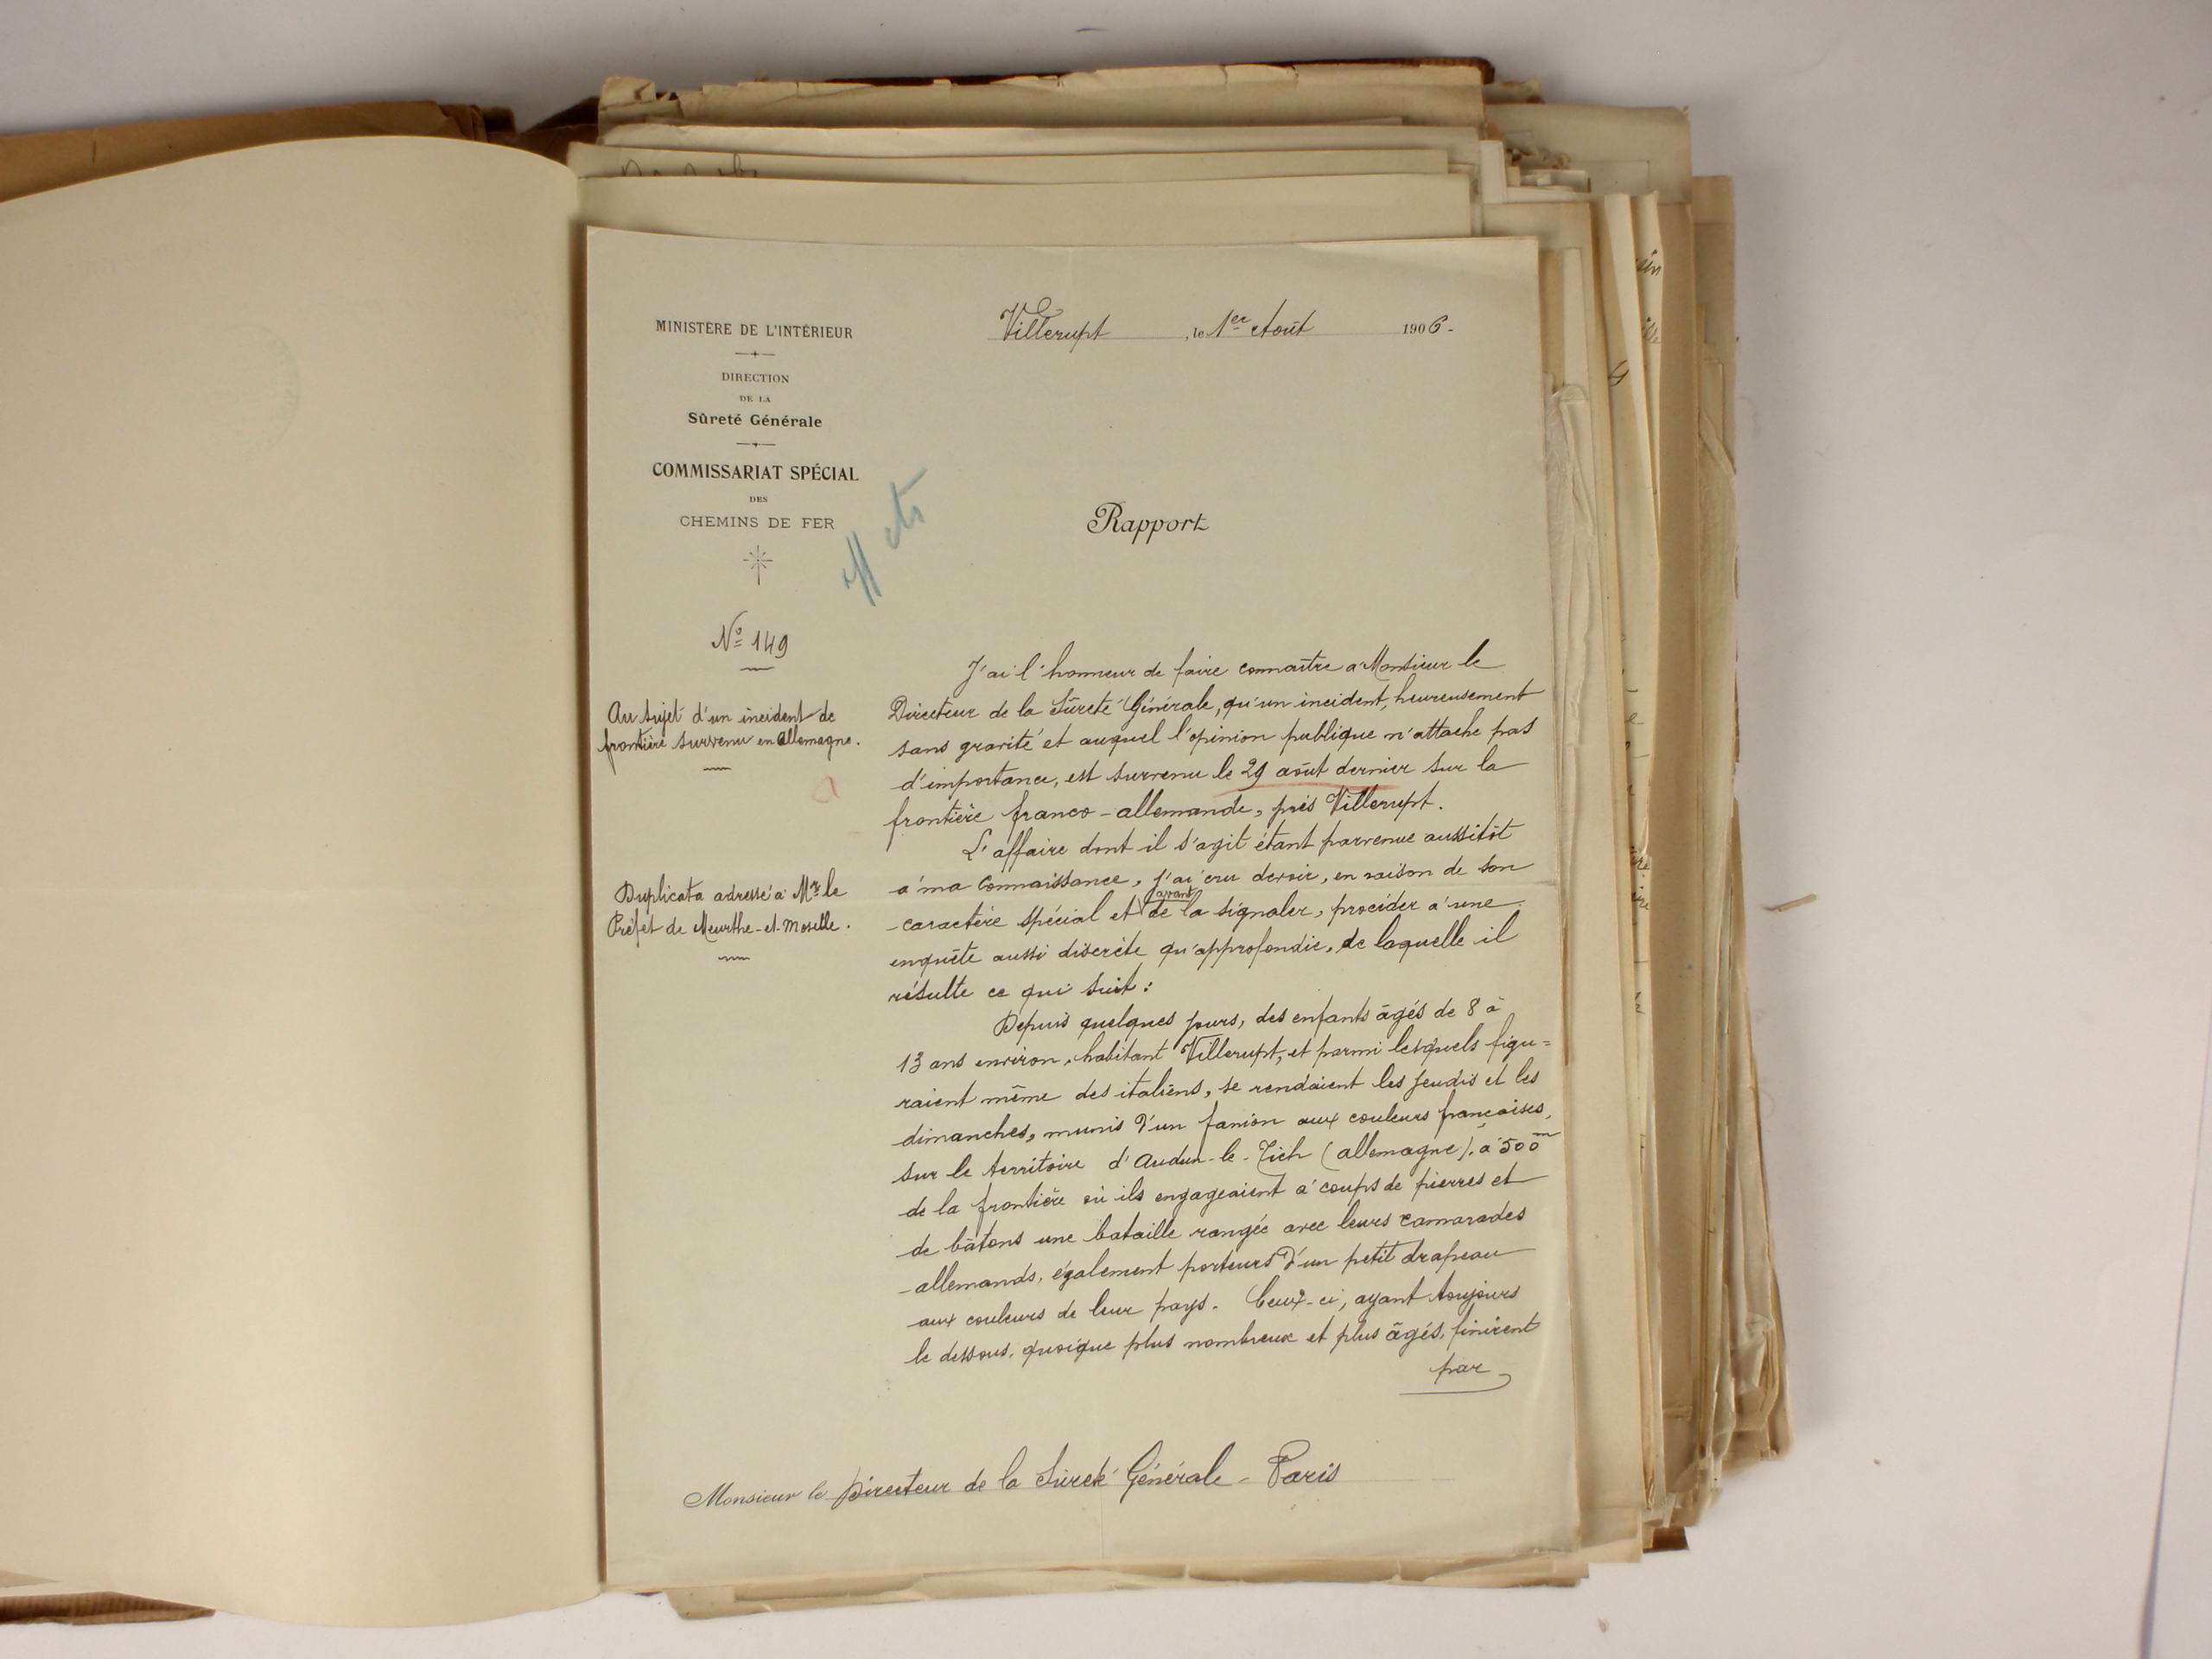 MINISTÈRE DE L'INTÉRIEUR
DIRECTION
DE LA
Sûreté Générale
COMMISSARIAT SPÉCIAL
DES
CHEMINS DE FER
Villerupt, le 1er Août 1906.
Rapport
Nº 149
Au sujet d'un incident de
frontière survenu en Allemagne.
Duplicata adressé à Mr le
Préfet de Meurthe-et-Moselle.
J'ai l'honneur de faire connaître à Monsieur le
Directeur de la Sûreté Générale, qu'un incident, heureusement
sans gravité et auquel l'opinion publique n'attache pas
d'importance, est survenu le 29 août dernier sur la
frontière franco-allemande, près Villerupt.
L'affaire dont il s'agit étant parvenue aussitôt
à ma connaissance, j'ai cru devoir, en raison de son
caractère spécial et avant de la signaler, procéder à une
enquête aussi discrète qu'approfondie, de laquelle il
résulte ce qui suit :
Depuis quelques jours, des enfants âgés de 8 à
13 ans environ, habitant Villerupt, et parmi lesquels figu=
raient même des italiens, se rendaient les jeudis et les
dimanches, munis d'un fanion aux couleurs françaises,
sur le territoire d'Audun-le-Tich (allemagne), à 500m
de la frontière où ils engageaient à coups de pierres et
de bâtons une bataille rangée avec leurs camarades
allemands, également porteurs d'un petit drapeau
aux couleurs de leur pays. Ceux-ci, ayant toujours
le dessous, quoique plus nombreux et plus âgés, finirent
par
Monsieur le Directeur de la Sûreté Générale - Paris